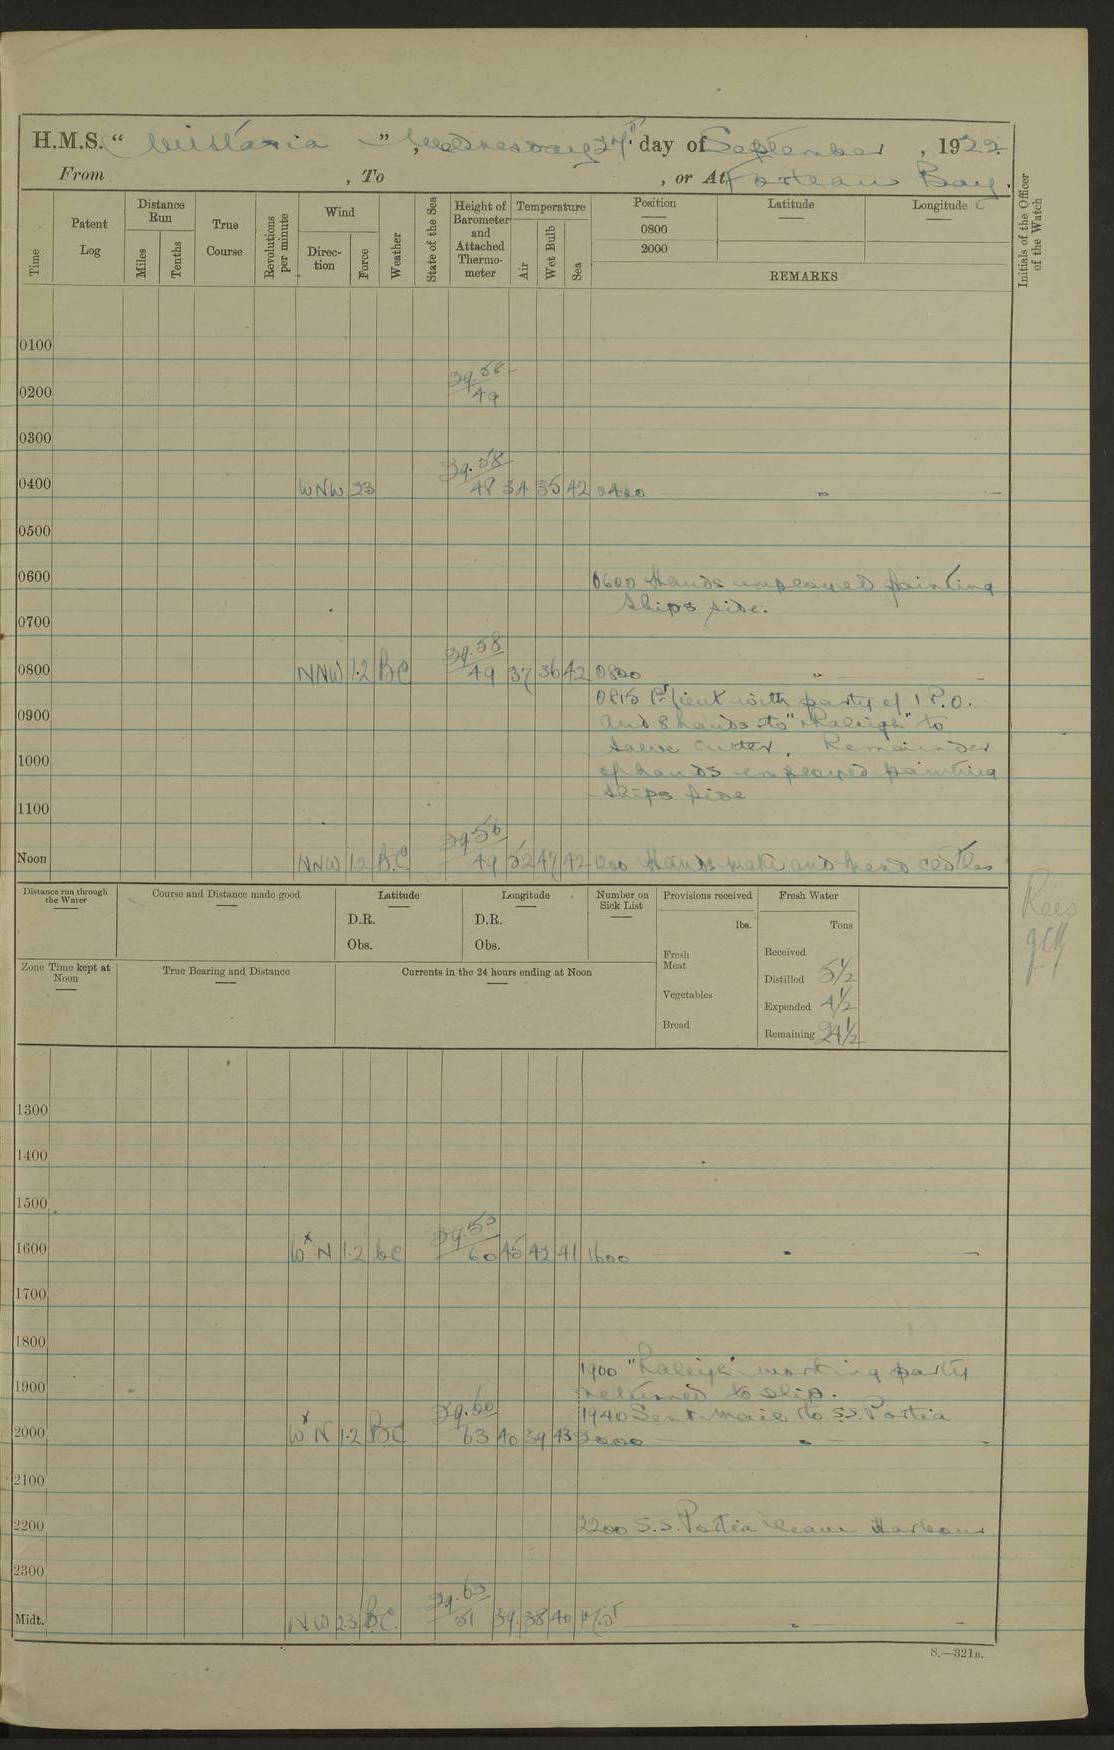 H.M.S. “Wistaria”, Wednesday 27th day of September, 1922.
From , To , or At Forteau Bay.
Time
Patent Log
Distance Run
Miles
Tenths
True Course
Revolutions per minute
Wind
Direction
Force
Weather
State of the Sea
Height of Barometer and Attached Thermometer
Temperature
Air
Wet Bulb
Sea
Position
0800
2000
Latitude
Longitude
REMARKS
Initials of the Officer of the Watch
0100
0200 29.58 49
0300
0400 WNW 23 29.58 48 34 35 42 0400 "
0500
0600 0600 Hands employed painting
ships side.
0700
0800 NNW 1.2 BC 29.58 49 37 36 42 0800 "
0815 with party of 1 P.O.
0900 and 8 hands to "Raleigh" to
salve cutter. Remainder
1000 of hands employed painting
ships side
1100
Noon NNW 12 B.C. 29.56 49 52 47 42 1200 Hands make and mend clothes
Distance run through the Water
Course and Distance made good
Latitude
D.R.
Obs.
Longitude
D.R.
Obs.
Number on Sick List
Provisions received
lbs.
Fresh Meat
Vegetables
Bread
Fresh Water
Tons
Received
Distilled 5½
Expended 4½
Remaining 24½
Zone Time kept at Noon
True Bearing and Distance
Currents in the 24 hours ending at Noon
1300
1400
1500
1600 WxN 1.2 bc 29.53 60 45 42 41 1600 "
1700
1800
1900 "Raleigh" working party
1900 returned to ship.
1940 Sent mail to S.S. Portia
2000 WxN 1.2 BC 29.60 63 40 39 43 2000 "
2100
2200 2200 S.S. Portia leave Harbour
2300
Midt. NW 2.3 B.C. 29.63 51 39 38 40 "
S.—321B.